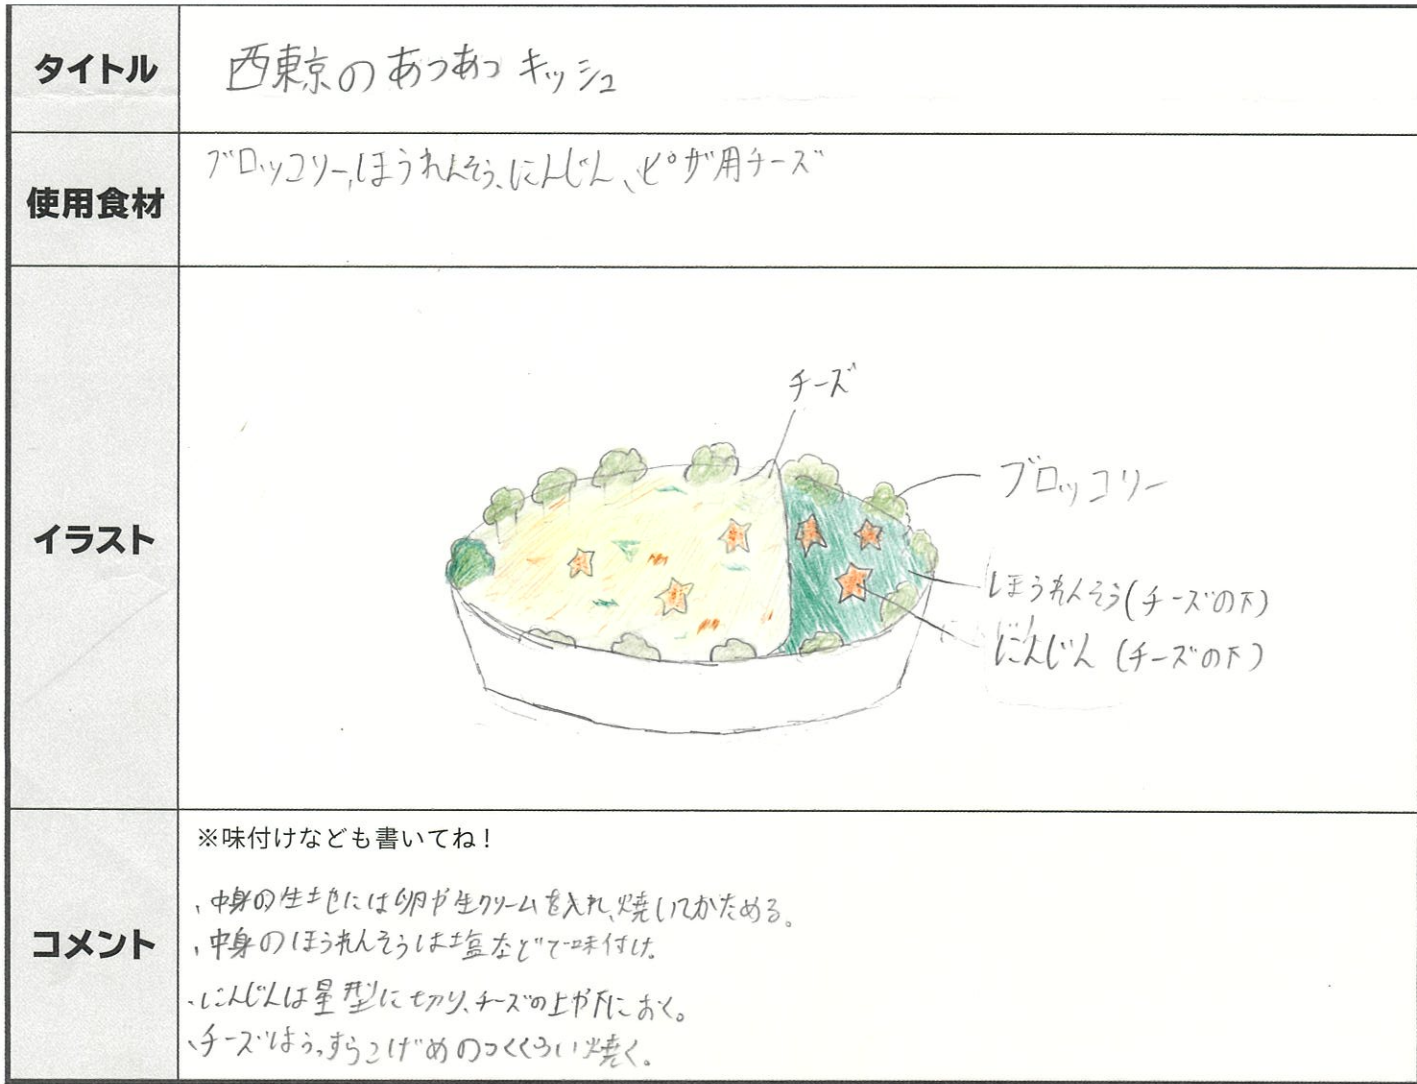 タイトル
西東京のあつあつキッシュ
使用食材
ブロッコリー、ほうれんそう、にんじん、ピザ用チーズ
イラスト
チーズ
ブロッコリー
ほうれんそう(チーズの下)
にんじん(チーズの下)
コメント
※味付けなども書いてね!
、中身の生地には卵や生クリームを入れ、焼いてかためる。
、中身のほうれんそうは塩などで味付け。
、にんじんは星型に切り、チーズの上や下におく。
、チーズはうっすらこげめのつくくらい焼く。